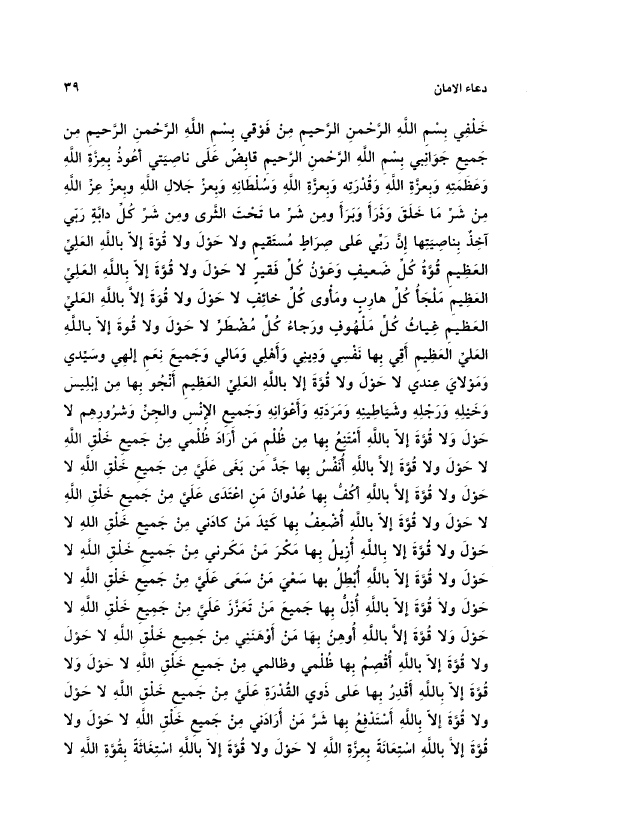 دعاء الامان ٣٩
خَلْفِي بِسْمِ اللَّهِ الرَّحْمنِ الرَّحيمِ مِنْ فَوْقي بِسْمِ اللَّهِ الرَّحْمنِ الرَّحيمِ مِن
جَميعِ جَوَانِبي بِسْمِ اللَّهِ الرَّحْمنِ الرَّحيمِ قابِضٌ عَلَى ناصِيَتي أعُوذُ بِعِزَّةِ اللَّهِ
وَعَظَمَتِهِ وَبِعِزَّةِ اللَّهِ وَقُدْرَتِهِ وَبِعزَّةِ اللَّهِ وَسُلْطَانِهِ وَبِعزِ جَلالِ اللَّهِ وبِعزِ عِزْ اللَّهِ
مِنْ شَرِّ مَا خَلَقَ وَذَرَأَ وَبَرَأَ ومِن شَرِّ ما تَحْتَ الثَّرى ومِن شَرِّ كُلِّ دابَّةٍ رَبّي
آخِذٌ بِناصِيَتِها إنَّ رَبّي عَلى صِرَاطٍ مُستَقيمٍ ولا حَوْلَ ولا قُوّةَ إلاّ باللَّهِ العَلِيِّ
العَظِيمِ قُوَّةُ كُلِّ ضَعيفٍ وَعَوْنُ كُلِّ فَقيرٍ لا حَوْلَ ولا قُوَّةَ إلاّ بِاللَّهِ العَلِيِّ
العَظيمِ مَلْجَأُ كُلِّ هارِبٍ ومَأوى كُلِّ خائِفٍ لا حَوْلَ ولا قُوّةَ إلاَّ بِاللَّهِ العَلِيِّ
العَظيمِ غِياثُ كُلِّ مَلْهُوفٍ ورَجاءُ كُلِّ مُضْطَرٍّ لا حَوْلَ ولا قُوةَ إلاّ بِاللَّهِ
العَليِّ العَظيمِ أقِي بِها نَفْسِي وَدِينِي وَأَهْلِي وَمَالي وَجَميعَ نِعَمِ إلهِي وسَيّدي
وَمَوْلايَ عِندي لا حَوْلَ ولا قُوَّةَ إلا باللَّهِ العَلِيِّ العَظيمِ أَنْجُو بِها مِن إبْلِيسَ
وَخَيْلِهِ وَرَجْلِهِ وشَيَاطِينِهِ وَمَرَدَتِهِ وَأعْوَانِهِ وَجَميعِ الإنْسِ والجِنْ وَشُرُورِهِم لا
حَوْلَ وَلا قُوَّةَ إلاّ باللَّهِ أَمْتَنِعُ بِها مِن ظُلْمِ مَن أرَادَ ظُلْمي مِنْ جَميعِ خَلْقِ اللَّهِ
لا حَوْلَ ولا قُوَّةَ إلاَّ باللَّهِ أَنْقُسُ بِها جَدَّ مَن بَغَى عَلَيَّ مِن جَميعِ خَلْقِ اللَّهِ لا
حَوْلَ ولا قُوَّةَ إلاَّ باللَّهِ أكُفُّ بِها عُدْوانَ مَنِ اعْتَدَى عَلَيَّ مِنْ جَميعِ خَلْقِ اللَّهِ
لا حَوْلَ ولا قُوَّةَ إلاّ بِاللَّهِ أُضْعِفُ بِها كَيْدَ مَنْ كادَني مِنْ جَميعِ خَلْقِ اللهِ لا
حَوْلَ ولا قُوَّةَ إلا بِاللَّهِ أُزِيلُ بِها مَكْرَ مَنْ مَكَرني مِنْ جَميعِ خَلْقِ اللَّهِ لا
حَوْلَ ولا قُوَّةَ إلاّ باللَّهِ أُبْطِلُ بها سَعْيَ مَنْ سَعَى عَلَيَّ مِنْ جَميعِ خَلْقِ اللَّهِ لا
حَوْلَ ولاَ قُوَّةَ إلاّ باللَّهِ أُذِلُّ بِها جَميعَ مَنْ تَعَزَّزَ عَلَيَّ مِنْ جَميعِ خَلْقِ اللَّهِ لا
حَوْلَ وَلا قُوَّةَ إلاَّ باللَّهِ أُوهِنُ بِهَا مَنْ أَوْهَنَني مِنْ جَميعِ خَلْقِ اللَّهِ لا حَوْلَ
ولا قُوَّةَ إلاّ باللَّهِ أُقْصِمُ بِها ظُلْمي وظالمي مِن جَميعِ خَلْقِ اللَّهِ لا حَوْلَ وَلا
قُوَّةَ إلاّ باللَّهِ أَقْدِرُ بِها عَلى ذَوي القُدْرَةِ عَلَيَّ مِنْ جَميعِ خَلْقِ اللَّهِ لا حَوْلَ
ولا قُوَّةَ إلاّ باللَّهِ أَسْتَدْفِعُ بِها شَرَّ مَنْ أَرَادَني مِنْ جَميعِ خَلْقِ اللَّهِ لا حَوْلَ ولا
قُوَّةَ إلاَّ باللَّهِ اسْتِعَانَةً بِعِزَّةِ اللَّهِ لا حَوْلَ ولا قُوَّةَ إلاّ باللَّهِ اسْتِغَاثَةً بِقُوَّةِ اللَّهِ لا